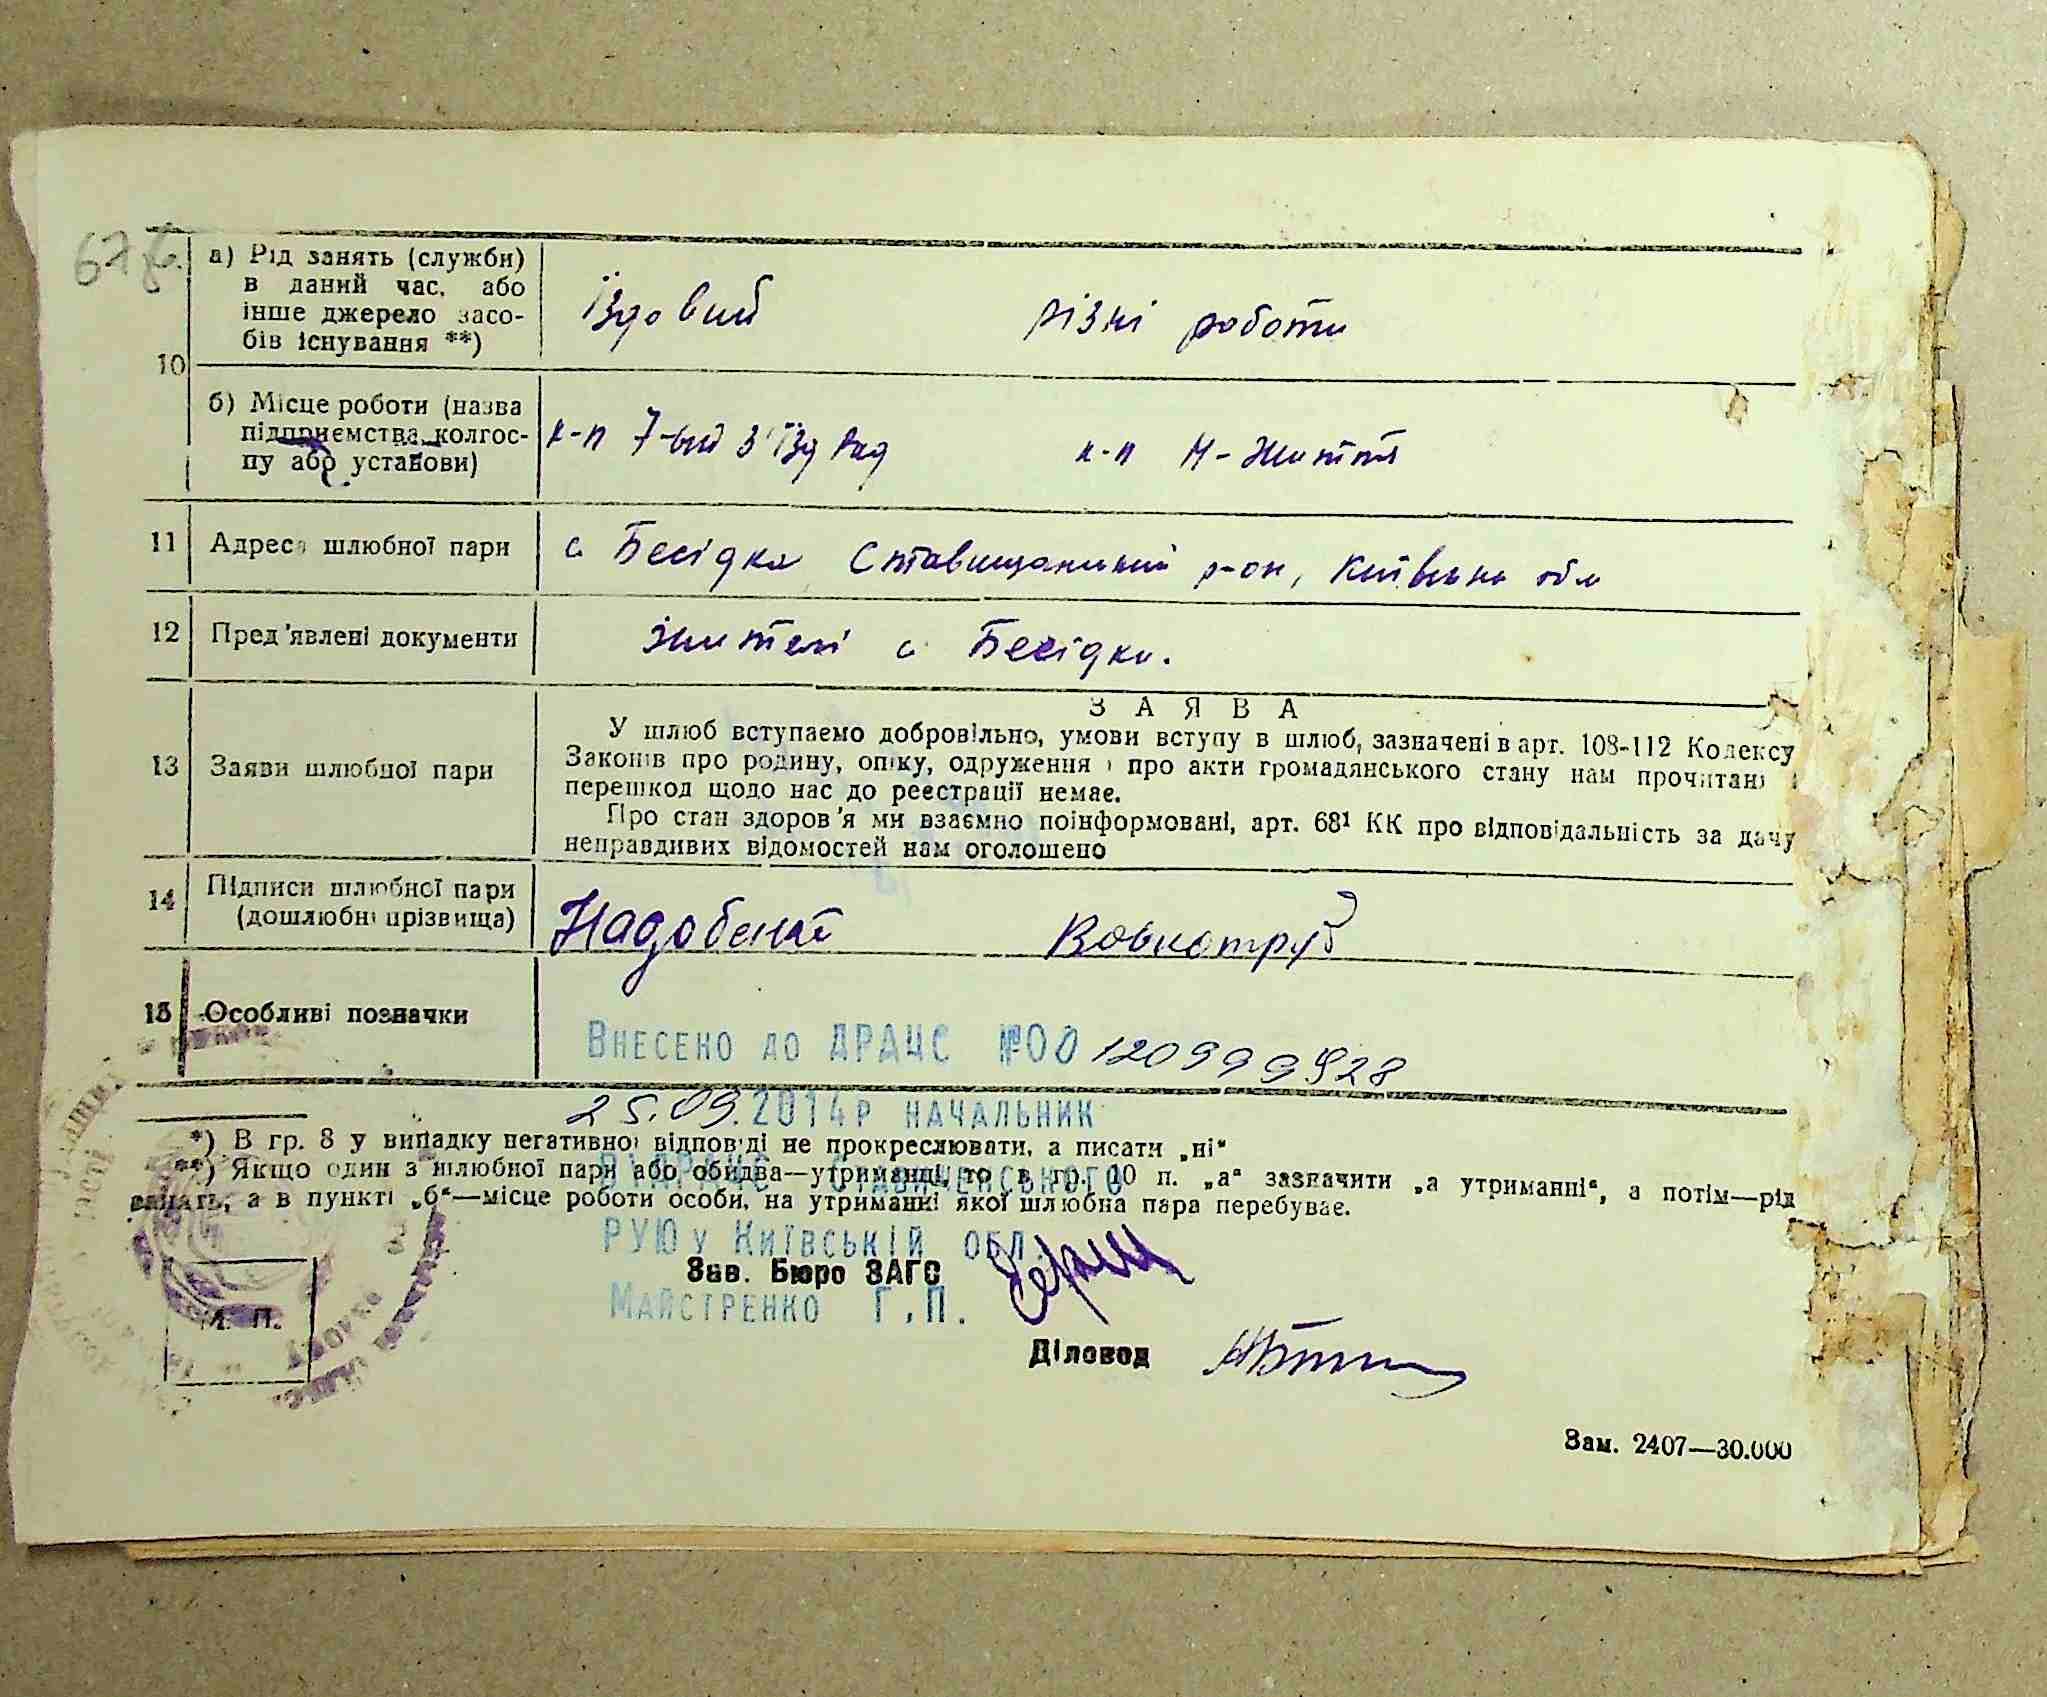 67
10
а) Рід занять (служби)
в даний час, або
інше джерело засо-
бів існування **)
Їздовий різні роботи
б) Місце роботи (назва
підприємства, колгос-
пу або установи)
к-п 7-ый З'їзд Рад к-п Н-Життя
11 Адреса шлюбної пари
с Бесідка Ставищанський р-он, Київська обл
12 Пред'явлені документи
жителі с Бесідки.
13 Заяви шлюбної пари
ЗАЯВА
У шлюб вступаємо добровільно, умови вступу в шлюб, зазначені в арт. 108-112 Кодексу
Законів про родину, опіку, одруження і про акти громадянського стану нам прочитані і
перешкод щодо нас до реєстрації немає.
Про стан здоров'я ми взаємно поінформовані, арт. 68¹ КК про відповідальність за дачу
неправдивих відомостей нам оголошено
14 Підписи шлюбної пари
(дошлюбні прізвища)
Вовкотруб
15 Особливі позначки
Внесено до ДРАЦС №00120999928
25.09.2014р начальник
*) В гр. 8 у випадку негативної відповіді не прокреслювати, а писати „ні“
**) Якщо один з шлюбної пари або обидва—утриманці, то в гр. 10 п. „а“ зазначити „а утриманні“, а потім—рід
занять, а в пункті „б“—місце роботи особи, на утриманні якої шлюбна пара перебуває.
ВДРАЦС Ставищенського
РУЮ у Київській обл.
Зав. Бюро ЗАГС
Майстренко Г.П.
М. П.
Діловод
Зам. 2407—30.000